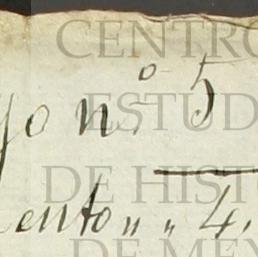 CENTRO
go n.º 5
ESTUD
DE HIST
ento,, ,, 4.
DE MÉX